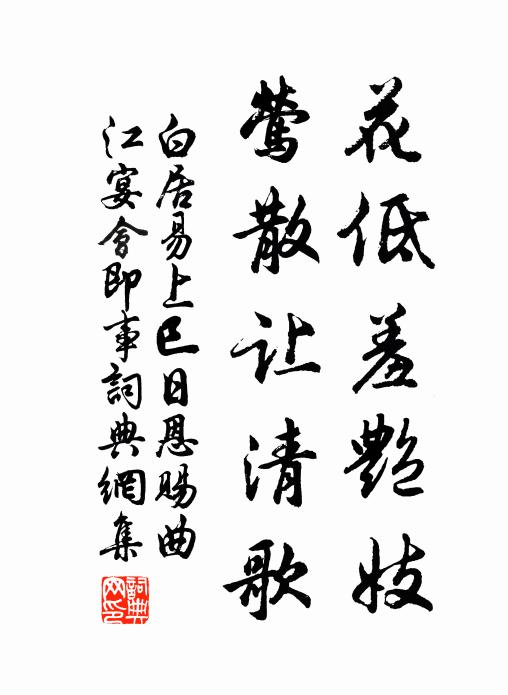 花低羞艷妓
莺散让清歌
白居易上巳日恩賜曲
江宴會即事詞典網集
詞典网印